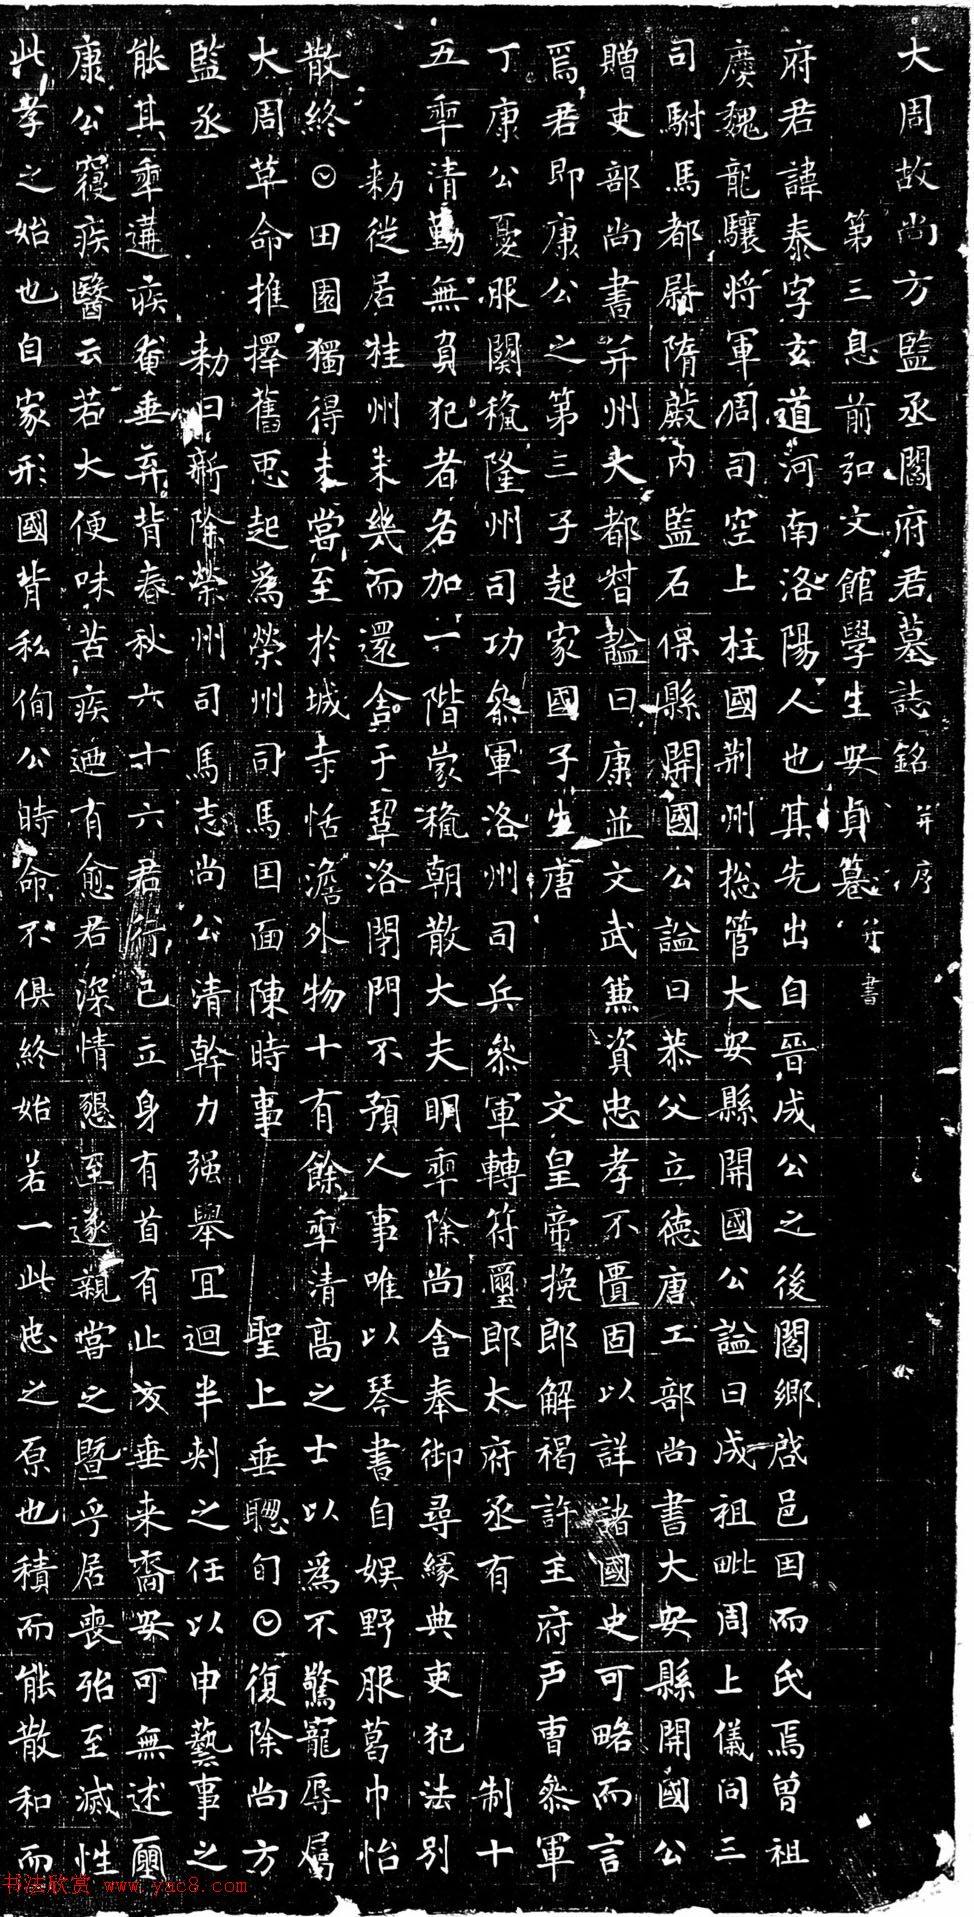 大周故尚方監丞閻府君墓誌銘并序
第三息前弘文館學生安貞纂并書
府君諱泰字玄道河南洛陽人也其先出自晉成公之後閻鄉啓邑因而氏焉曾祖
慶魏龍驤將軍周司空上柱國荊州揔管大安縣開國公謚曰成祖毗周上儀同三
司駙馬都尉隋殿內監石保縣開國公謚曰恭父立德唐工部尚書大安縣開國公
贈吏部尚書并州大都督謚曰康並文武兼資忠孝不匱固以詳諸國史可略而言
焉君即康公之第三子起家國子生唐 文皇帝挽郎解褐許王府戶曹叅軍
丁康公憂服闋穐隆州司功叅軍洛州司兵叅軍轉符璽郎太府丞有 制十
五𠡦清勤無負犯者各加一階蒙穐朝散大夫明𠡦除尚舍奉御尋緣典吏犯法別
勅徙居桂州未幾而還舍于鞏洛閉門不預人事唯以琴書自娛野服葛巾怡
散終𡆠田園獨得未嘗至於城寺恬澹外物十有餘𠡦清高之士以為不驚寵辱屬
大周革命推擇舊𢙣起為榮州司馬因面陳時事 聖上垂聰旬𡆠復除尚方
監丞 勅曰新除榮州司馬志尚公清幹力强舉宜迴半刾之任以申藝事之
能其𠡦遘疾奄垂弃背春秋六十六君行己立身有首有止方垂来裔安可無述爾
康公寢疾醫云若大便味苦疾迺有愈君深情懇至遂親嘗之暨乎居喪殆至滅性
此孝之始也自家形國背私徇公時命不俱終始若一此忠之原也積而能散和而
书法欣赏 www.yac8.com